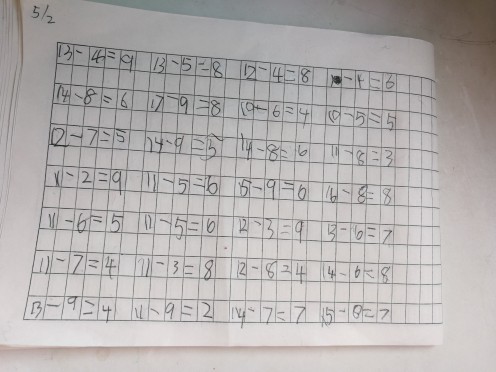 5/2
13-4=9 13-5=8 12-4=8 10-4=6
14-8=6 17-9=8 10-6=4 10-5=5
12-7=5 14-9=5 14-8=6 11-8=3
11-2=9 11-5=6 15-9=6 16-8=8
11-6=5 11-5=6 12-3=9 13-6=7
11-7=4 11-3=8 12-8=4 14-6=8
13-9=4 11-9=2 14-7=7 15-8=7